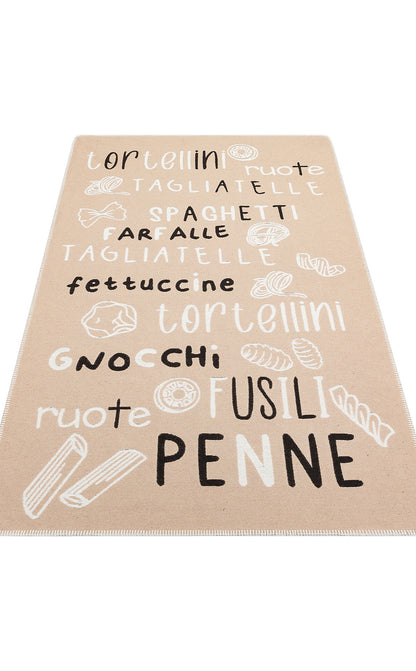 tortellini
ruote
TAGLIATELLE
SPAGHETTI
FARFALLE
TAGLIATELLE
fettuccine
tortellini
GNOCCHi
FUSILI
ruote
PENNE